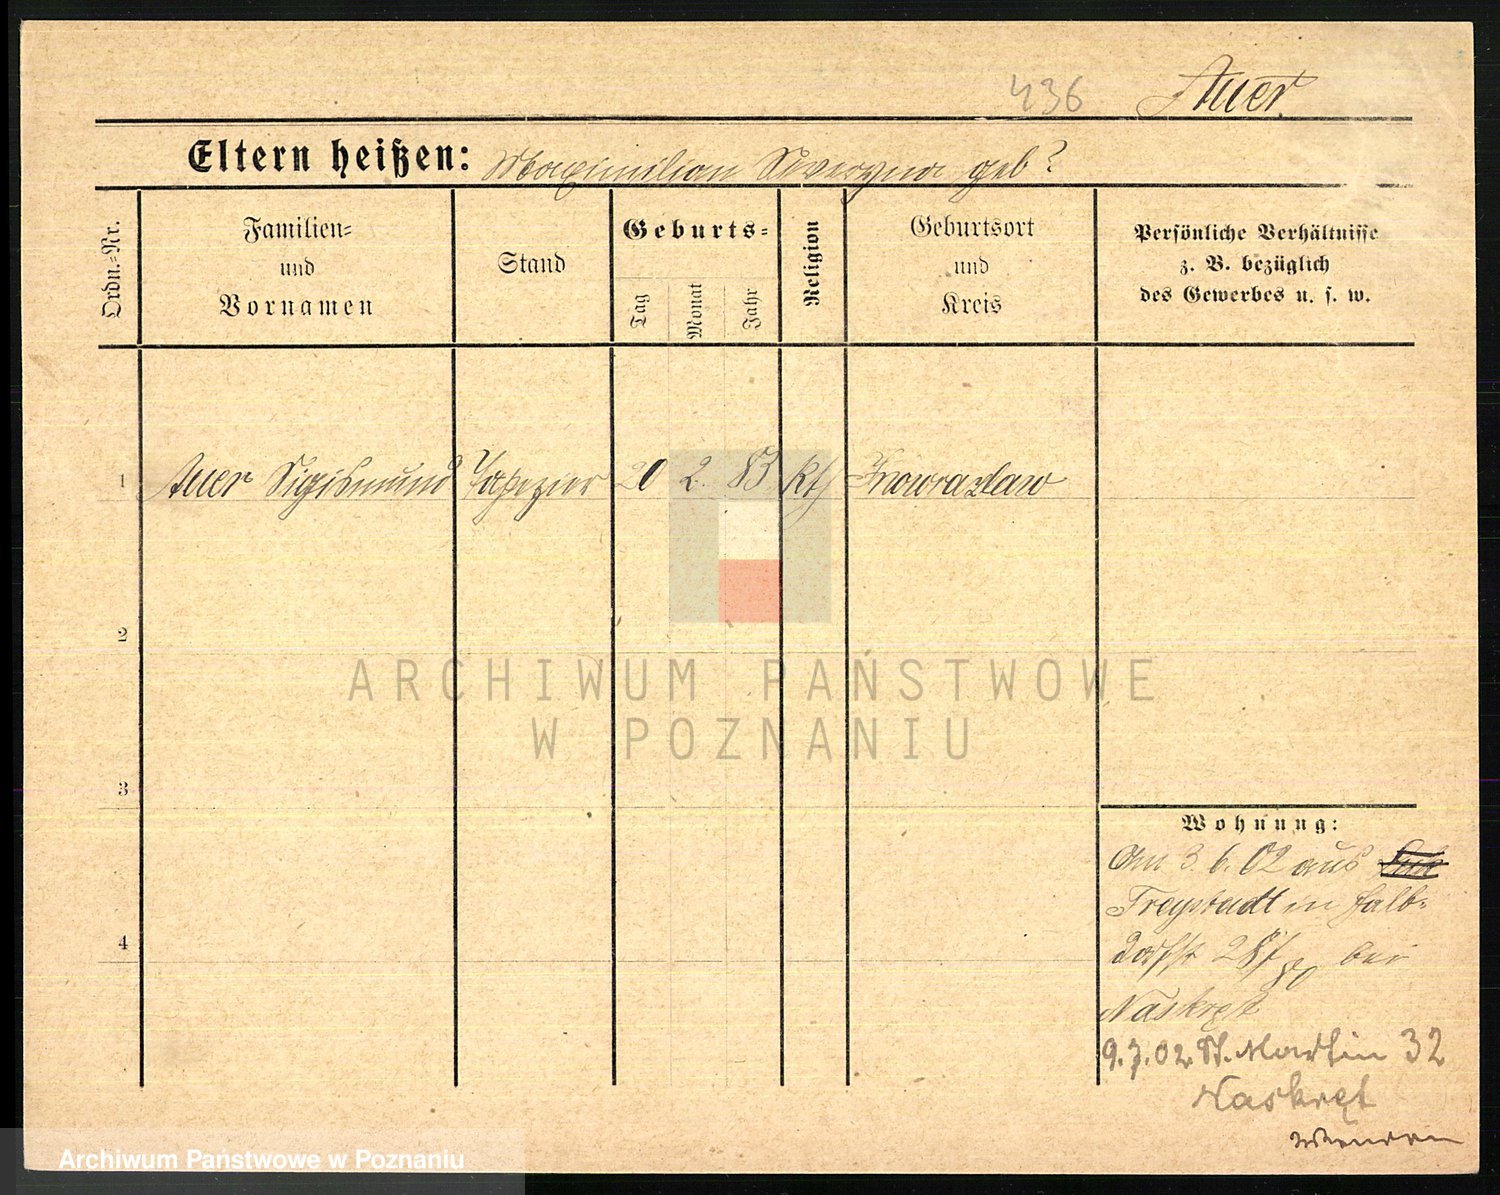 436 Auer
Eltern heißen: Maximilian Seweryna geb?
Ordn.=Nr.
Familien=
und
Vornamen
Stand
Geburts=
Tag
Monat
Jahr
Religion
Geburtsort
und
Kreis
Persönliche Verhältnisse
z. B. bezüglich
des Gewerbes u. s. w.
1 Auer Sigismund Tapezier 20 2. 83 kth Inowrazlaw
2
3
4
Wohnung:
Am 3. 6. 02 aus
Freystadt in Halb=
dorfstr bei
Naskręt
9.7.02 St. Martin 32
Naskręt
ARCHIWUM PAŃSTWOWE
W POZNANIU
Archiwum Państwowe w Poznaniu